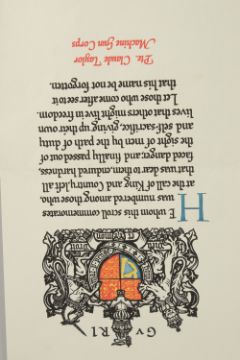 GVRI
HE whom this scroll commemorates
was numbered among those who,
at the call of King and Country, left all
that was dear to them, endured hardness,
faced danger, and finally passed out of
the sight of men by the path of duty
and self-sacrifice, giving up their own
lives that others might live in freedom.
Let those who come after see to it
that his name be not forgotten.
Pte. Claude Taylor
Machine Gun Corps